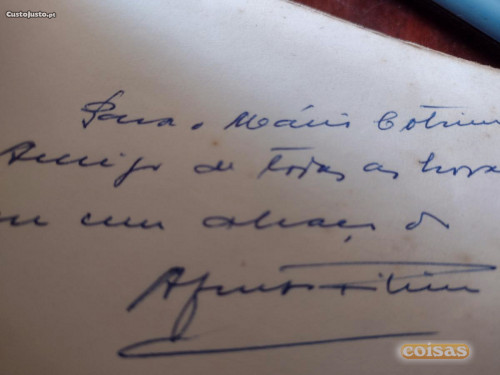 CustoJusto.pt
Para o Mário Cotrim
Amigo de todas as horas
com um abraço do
Afonso Ribeiro
coisas